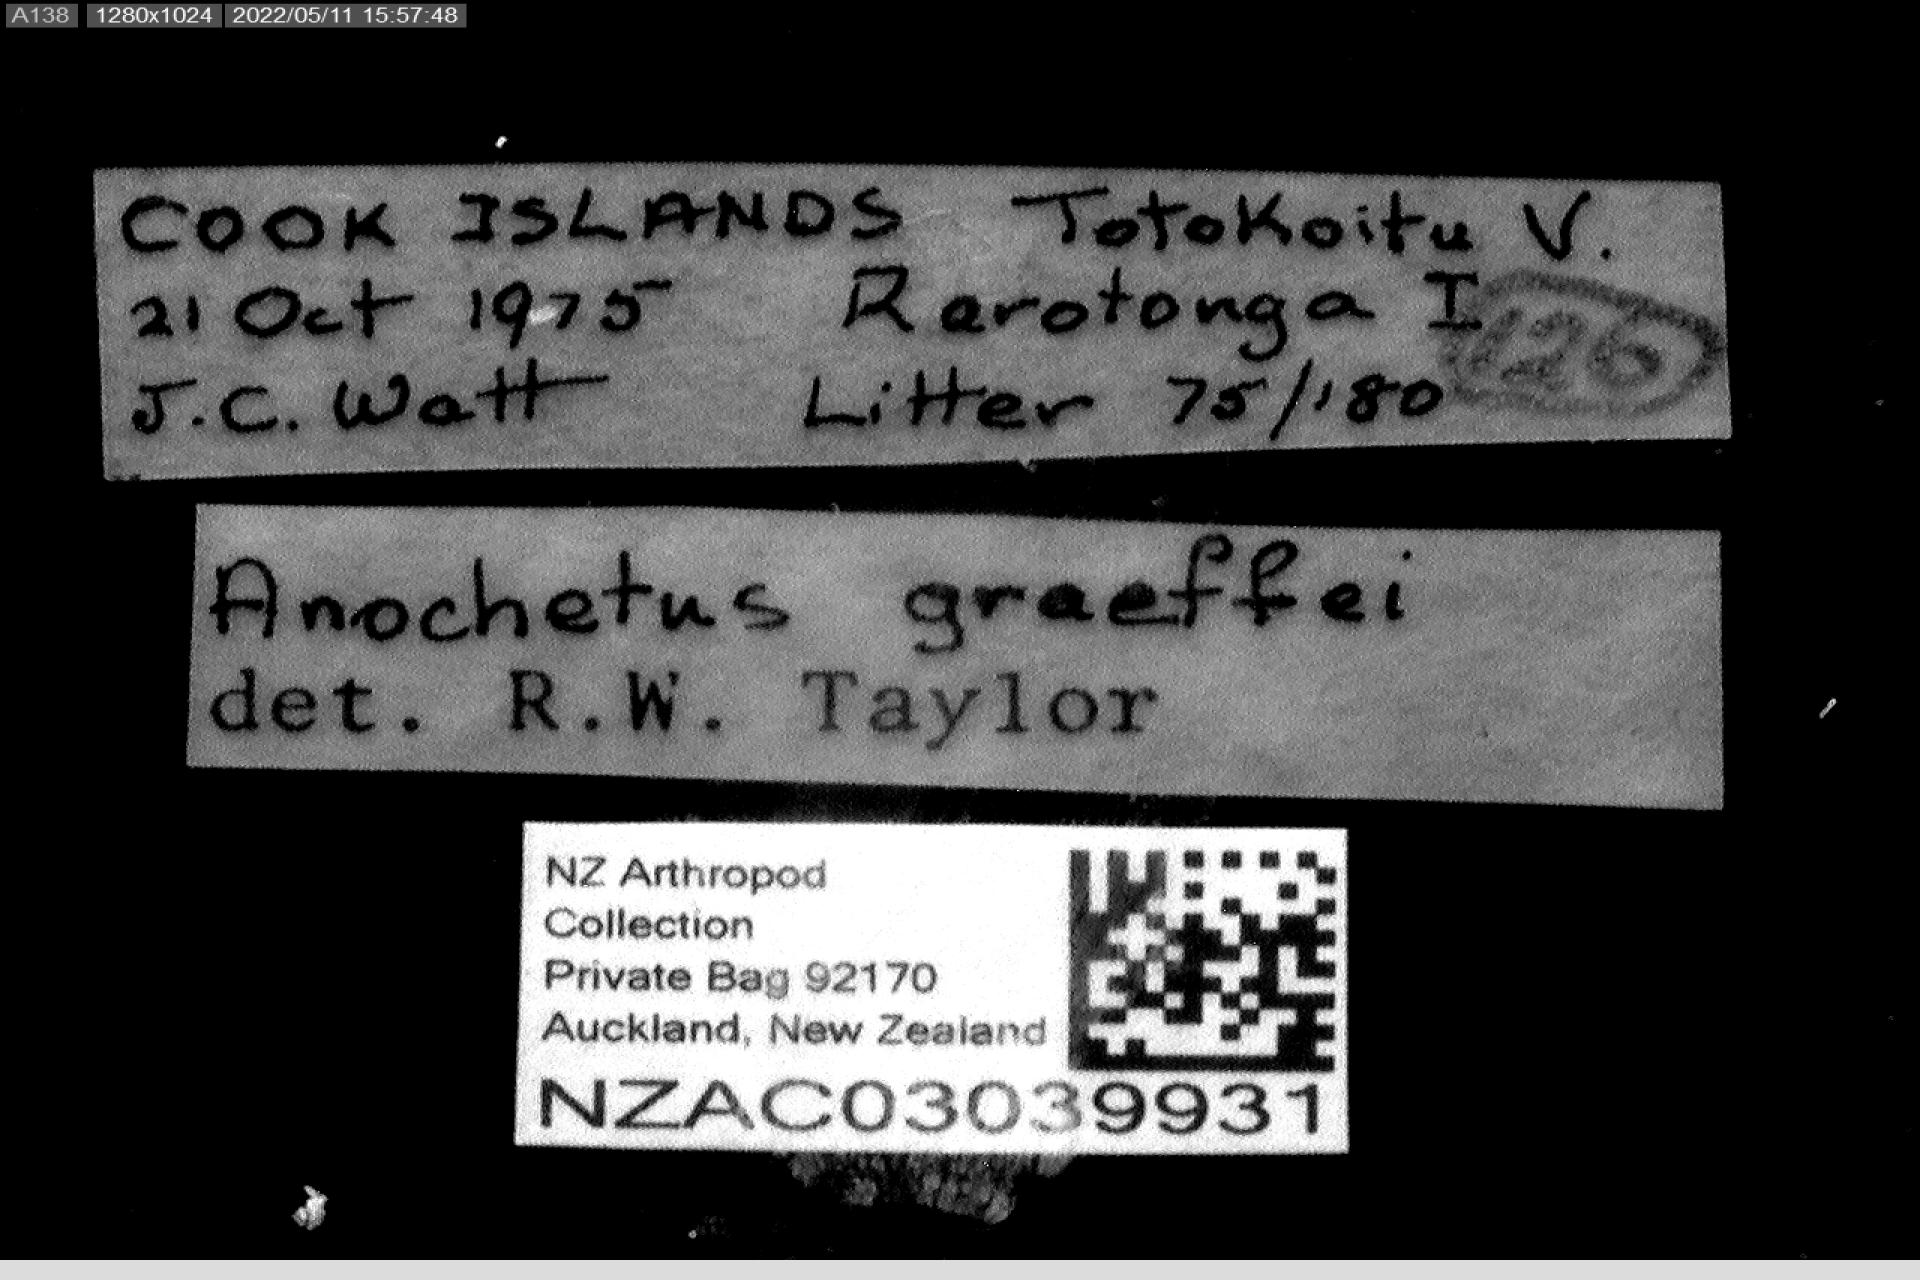 A138 1280x1024 2022/05/11 15:57:48
COOK ISLANDS Totokoitu V.
21 Oct 1975 Rarotonga I
126
J.C. Watt Litter 75/180
Anochetus graeffei
det. R.W. Taylor
NZ Arthropod
Collection
Private Bag 92170
Auckland, New Zealand
NZAC03039931